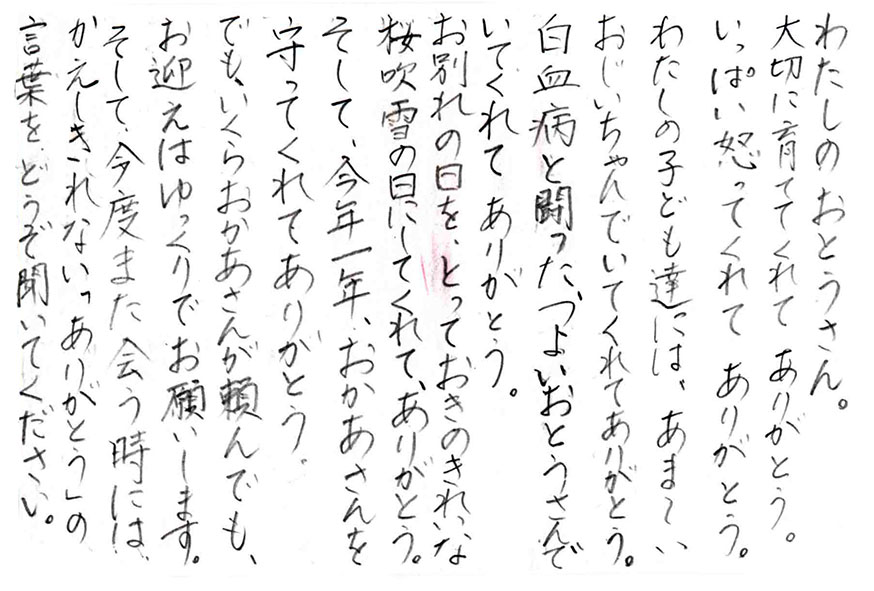 わたしのおとうさん。
大切に育ててくれて ありがとう。
いっぱい怒ってくれて ありがとう。
わたしの子ども達には、あま～い
おじいちゃんでいてくれてありがとう。
白血病と闘った、つよいおとうさんで
いてくれて ありがとう。
お別れの日を、とっておきのきれいな
桜吹雪の日にしてくれて、ありがとう。
そして、今年一年、おかあさんを
守ってくれてありがとう。
でも、いくらおかあさんが頼んでも、
お迎えはゆっくりでお願いします。
そして、今度また会う時には、
かえしきれない「ありがとう」の
言葉を、どうぞ聞いてください。